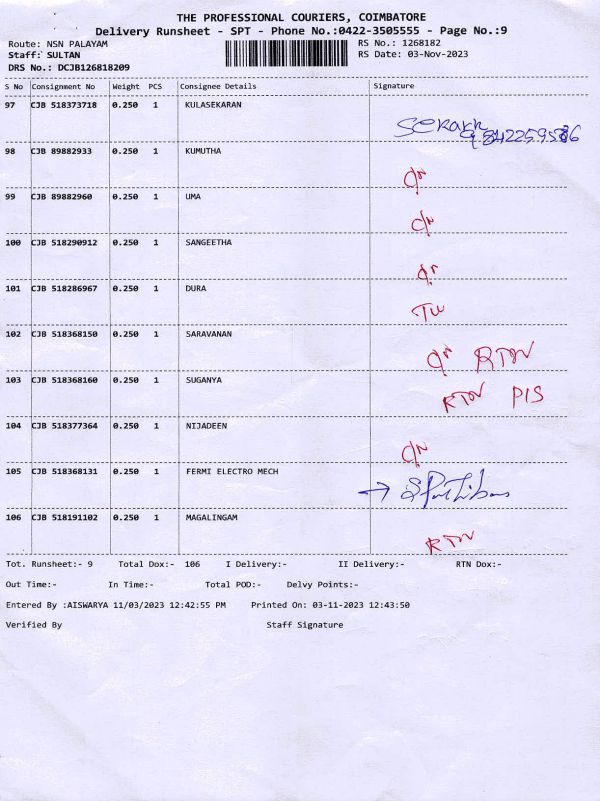 THE PROFESSIONAL COURIERS, COIMBATORE
Delivery Runsheet - SPT - Phone No.:0422-3505555 - Page No.:9
Route: NSN PALAYAM RS No.: 1268182
Staff: SULTAN RS Date: 03-Nov-2023
DRS No.: DCJB126818209
S No Consignment No Weight PCS Consignee Details Signature
97 CJB 518373718 0.250 1 KULASEKARAN
Sekark
98 CJB 89882933 0.250 1 KUMUTHA
99 CJB 89882960 0.250 1 UMA
100 CJB 518290912 0.250 1 SANGEETHA
101 CJB 518286967 0.250 1 DURA
102 CJB 518368150 0.250 1 SARAVANAN
RTN
103 CJB 518368160 0.250 1 SUGANYA
RTN PIS
104 CJB 518377364 0.250 1 NIJADEEN
105 CJB 518368131 0.250 1 FERMI ELECTRO MECH
106 CJB 518191102 0.250 1 MAGALINGAM
RTN
Tot. Runsheet:- 9 Total Dox:- 106 I Delivery:- II Delivery:- RTN Dox:-
Out Time:- In Time:- Total POD:- Delvy Points:-
Entered By :AISWARYA 11/03/2023 12:42:55 PM Printed On: 03-11-2023 12:43:50
Verified By Staff Signature